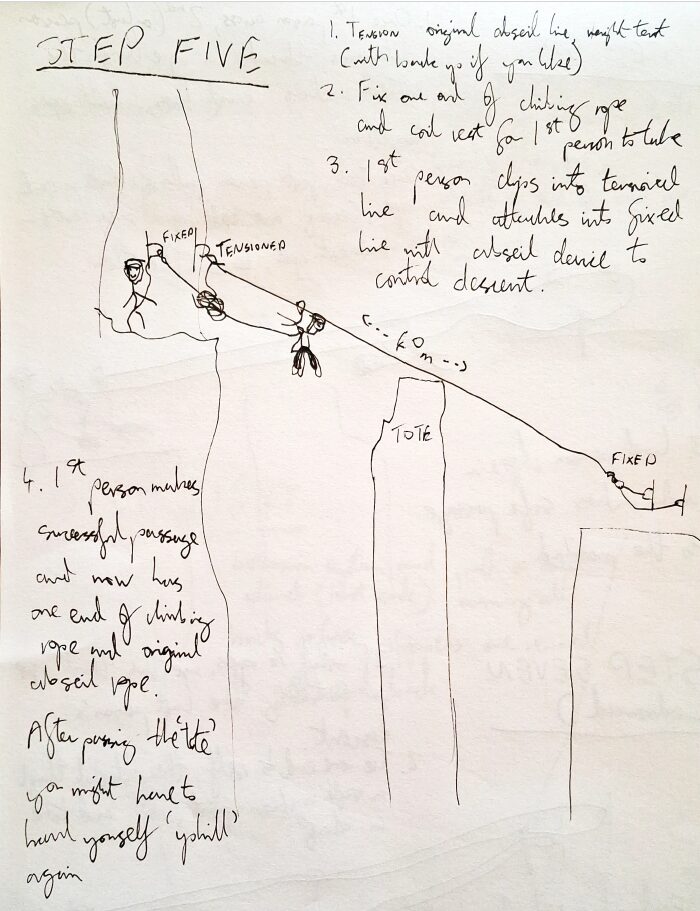 STEP FIVE
1. TENSION original abseil line, weight test
(with back up if you like)
2. Fix one end of climbing rope
and coil rest for 1st person to take
3. 1st person clips into tensioned
line and attaches into fixed
line with abseil device to
control descent.
FIXED
TENSIONED
<--- 60m --->
TOTE
FIXED
4. 1st person makes
successful passage
and now has
one end of climbing
rope and original
abseil rope.
After passing the 'tote'
you might have to
haul yourself 'uphill'
again